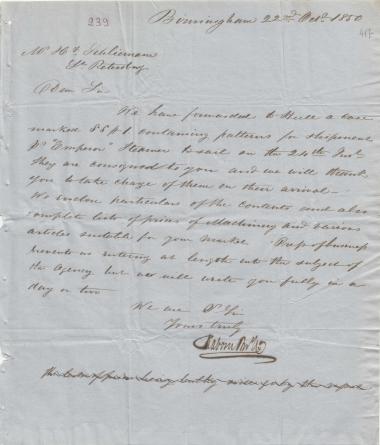 239
Birmingham 22nd Octr 1850
417
Mr Hy Schliemann
St Petersburg
Dear Sir
We have forwarded to Hull a case
marked containing patterns for shipment
pr "Emperor" Steamer to sail on the 24th Inst.
They are consigned to you and we will thank
you to take charge of them on their arrival —
We enclose particulars of the Contents and also
complete lists of prices of Machinery and various
articles suitable for your market. Press of business
prevents us entering at length into the subject of
the Agency but we will write you fully in a
day or two
We are Dr Sir
Yours truly
the lists of prices being bulky